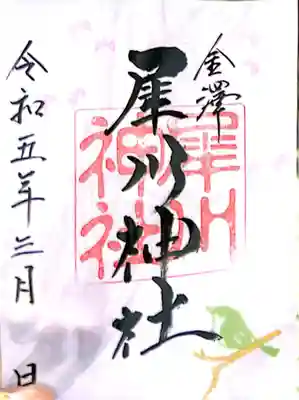 金澤
犀川神社
犀川
神社
令和五年三月 日